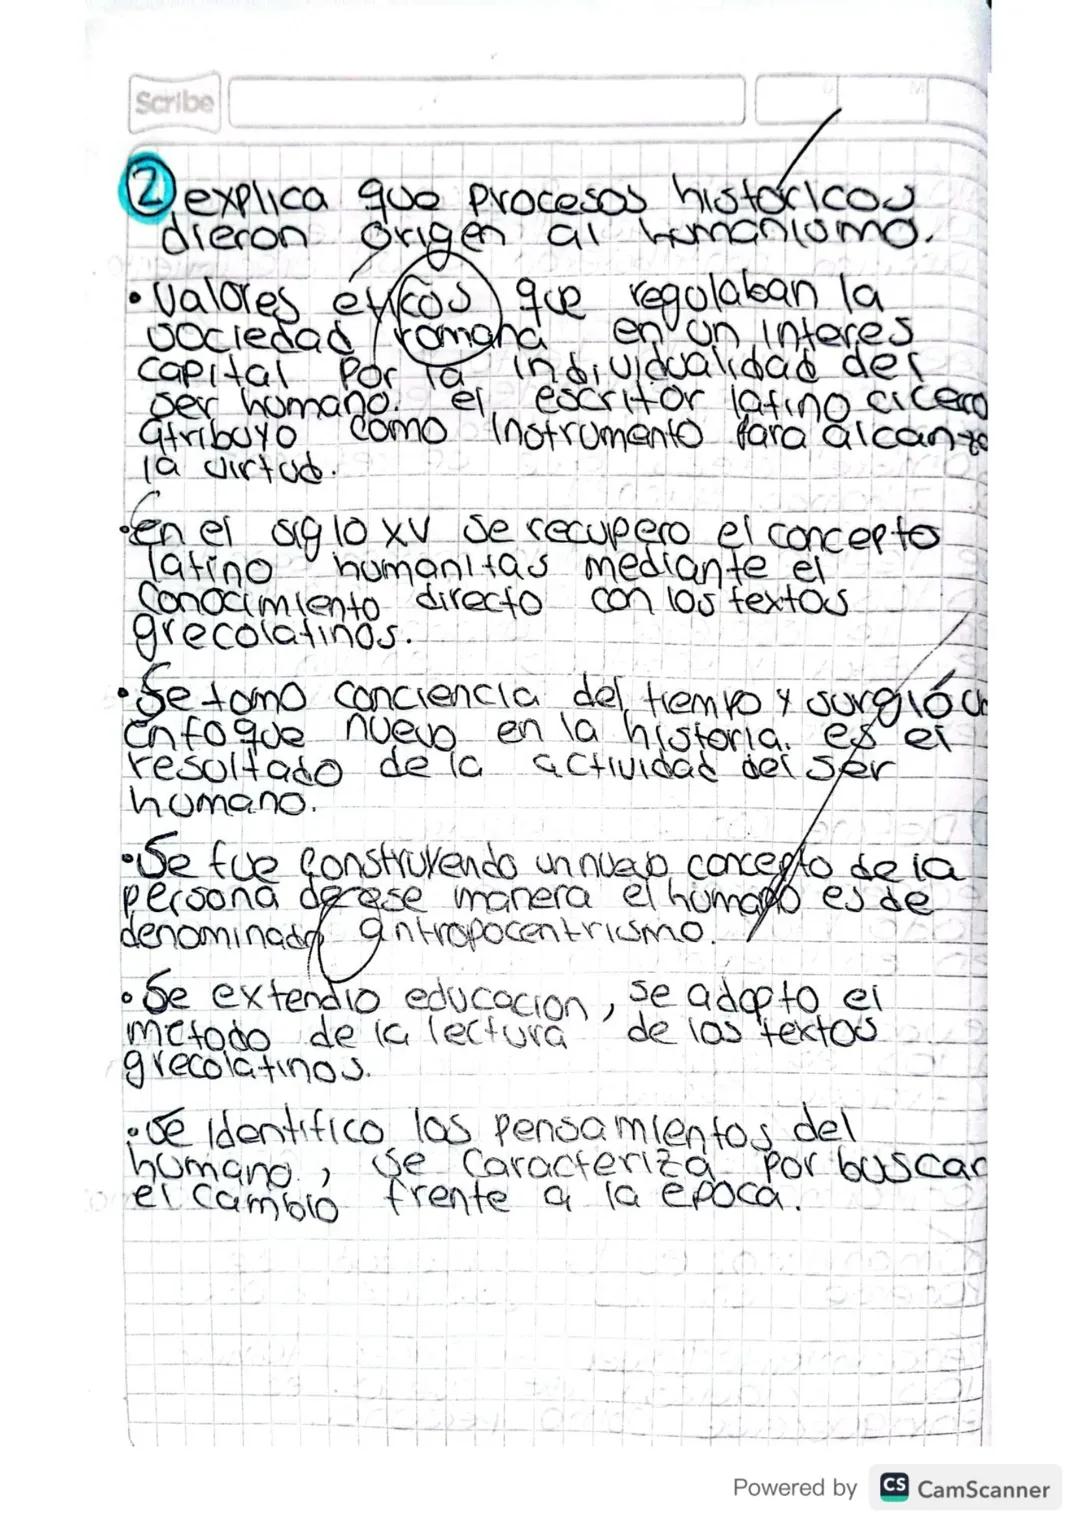 Scribe
D M
2 explica que procesos históricos
dieron origen al humanismo.
• Valores eticos que regulaban la
sociedad romana en un interes
capital por la individualidad del
ser humano. el escritor latino cicero
atribuyo como instrumento para alcanza
la virtud.
• en el siglo XV se recupero el concepto
latino humanitas mediante el
conocimiento directo con los textos
grecolatinos.
• Se tomo conciencia del tiempo y surgió un
enfoque nuevo en la historia. es el
resultado de la actividad del ser
humano.
• Se fue construyendo un nuevo concepto de la
persona de ese manera el humano es de
denominado antropocentrismo.
• Se extendio educacion, se adopto el
metodo de la lectura de los textos
grecolatinos.
• se identifico los pensamientos del
humano, se caracteriza por buscar
el cambio frente a la epoca.
Powered by CS CamScanner